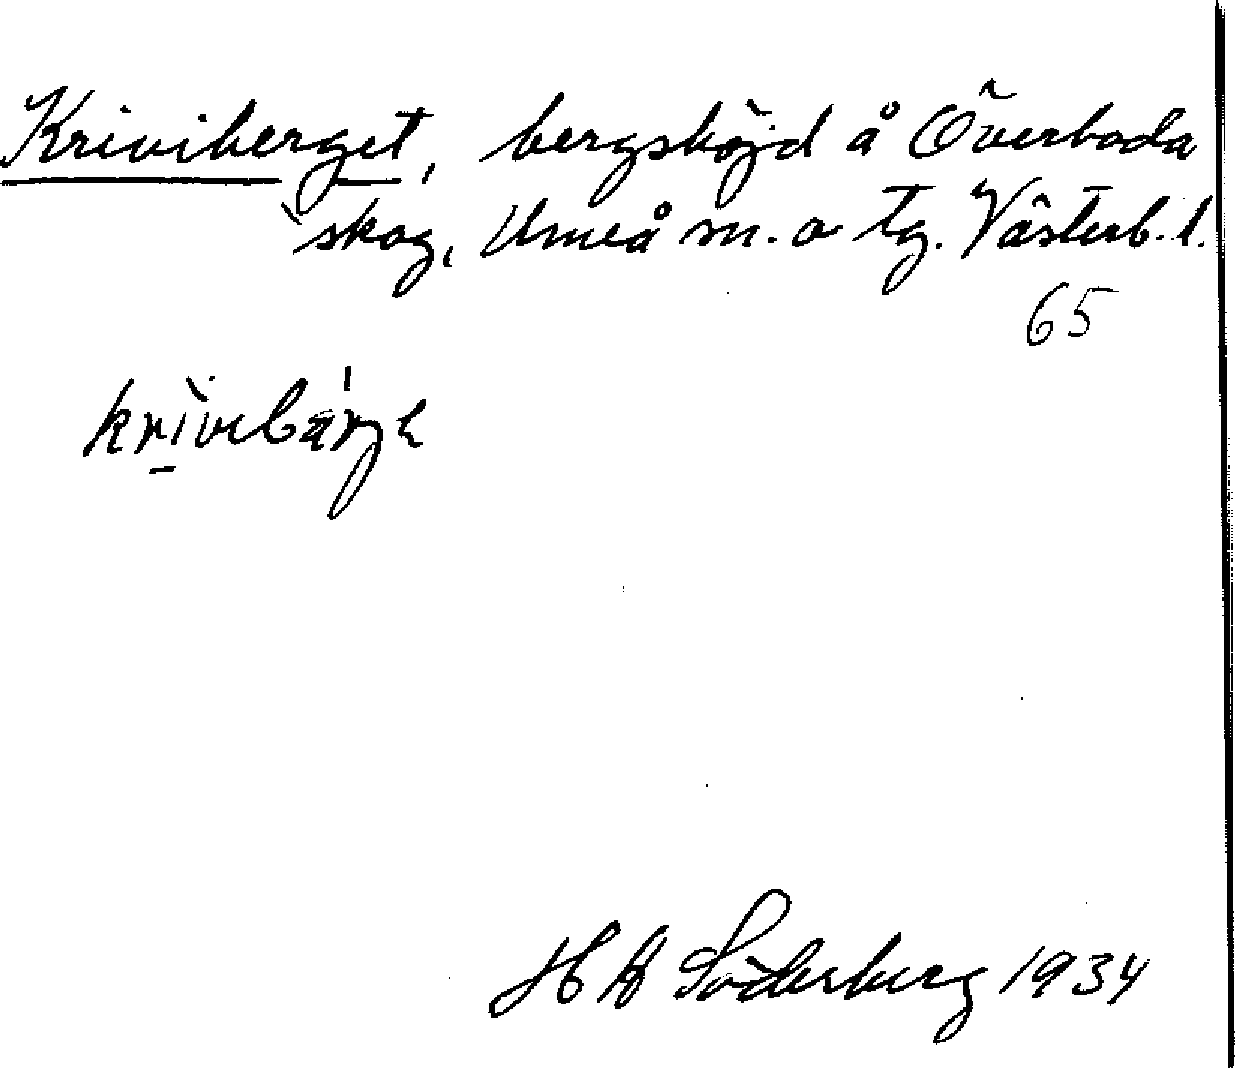 Kriviberget, bergshöjd å Överboda
skog, Umeå m. o tg. Västerb. l.
65
krìvebárje
H A Söderberg 1934